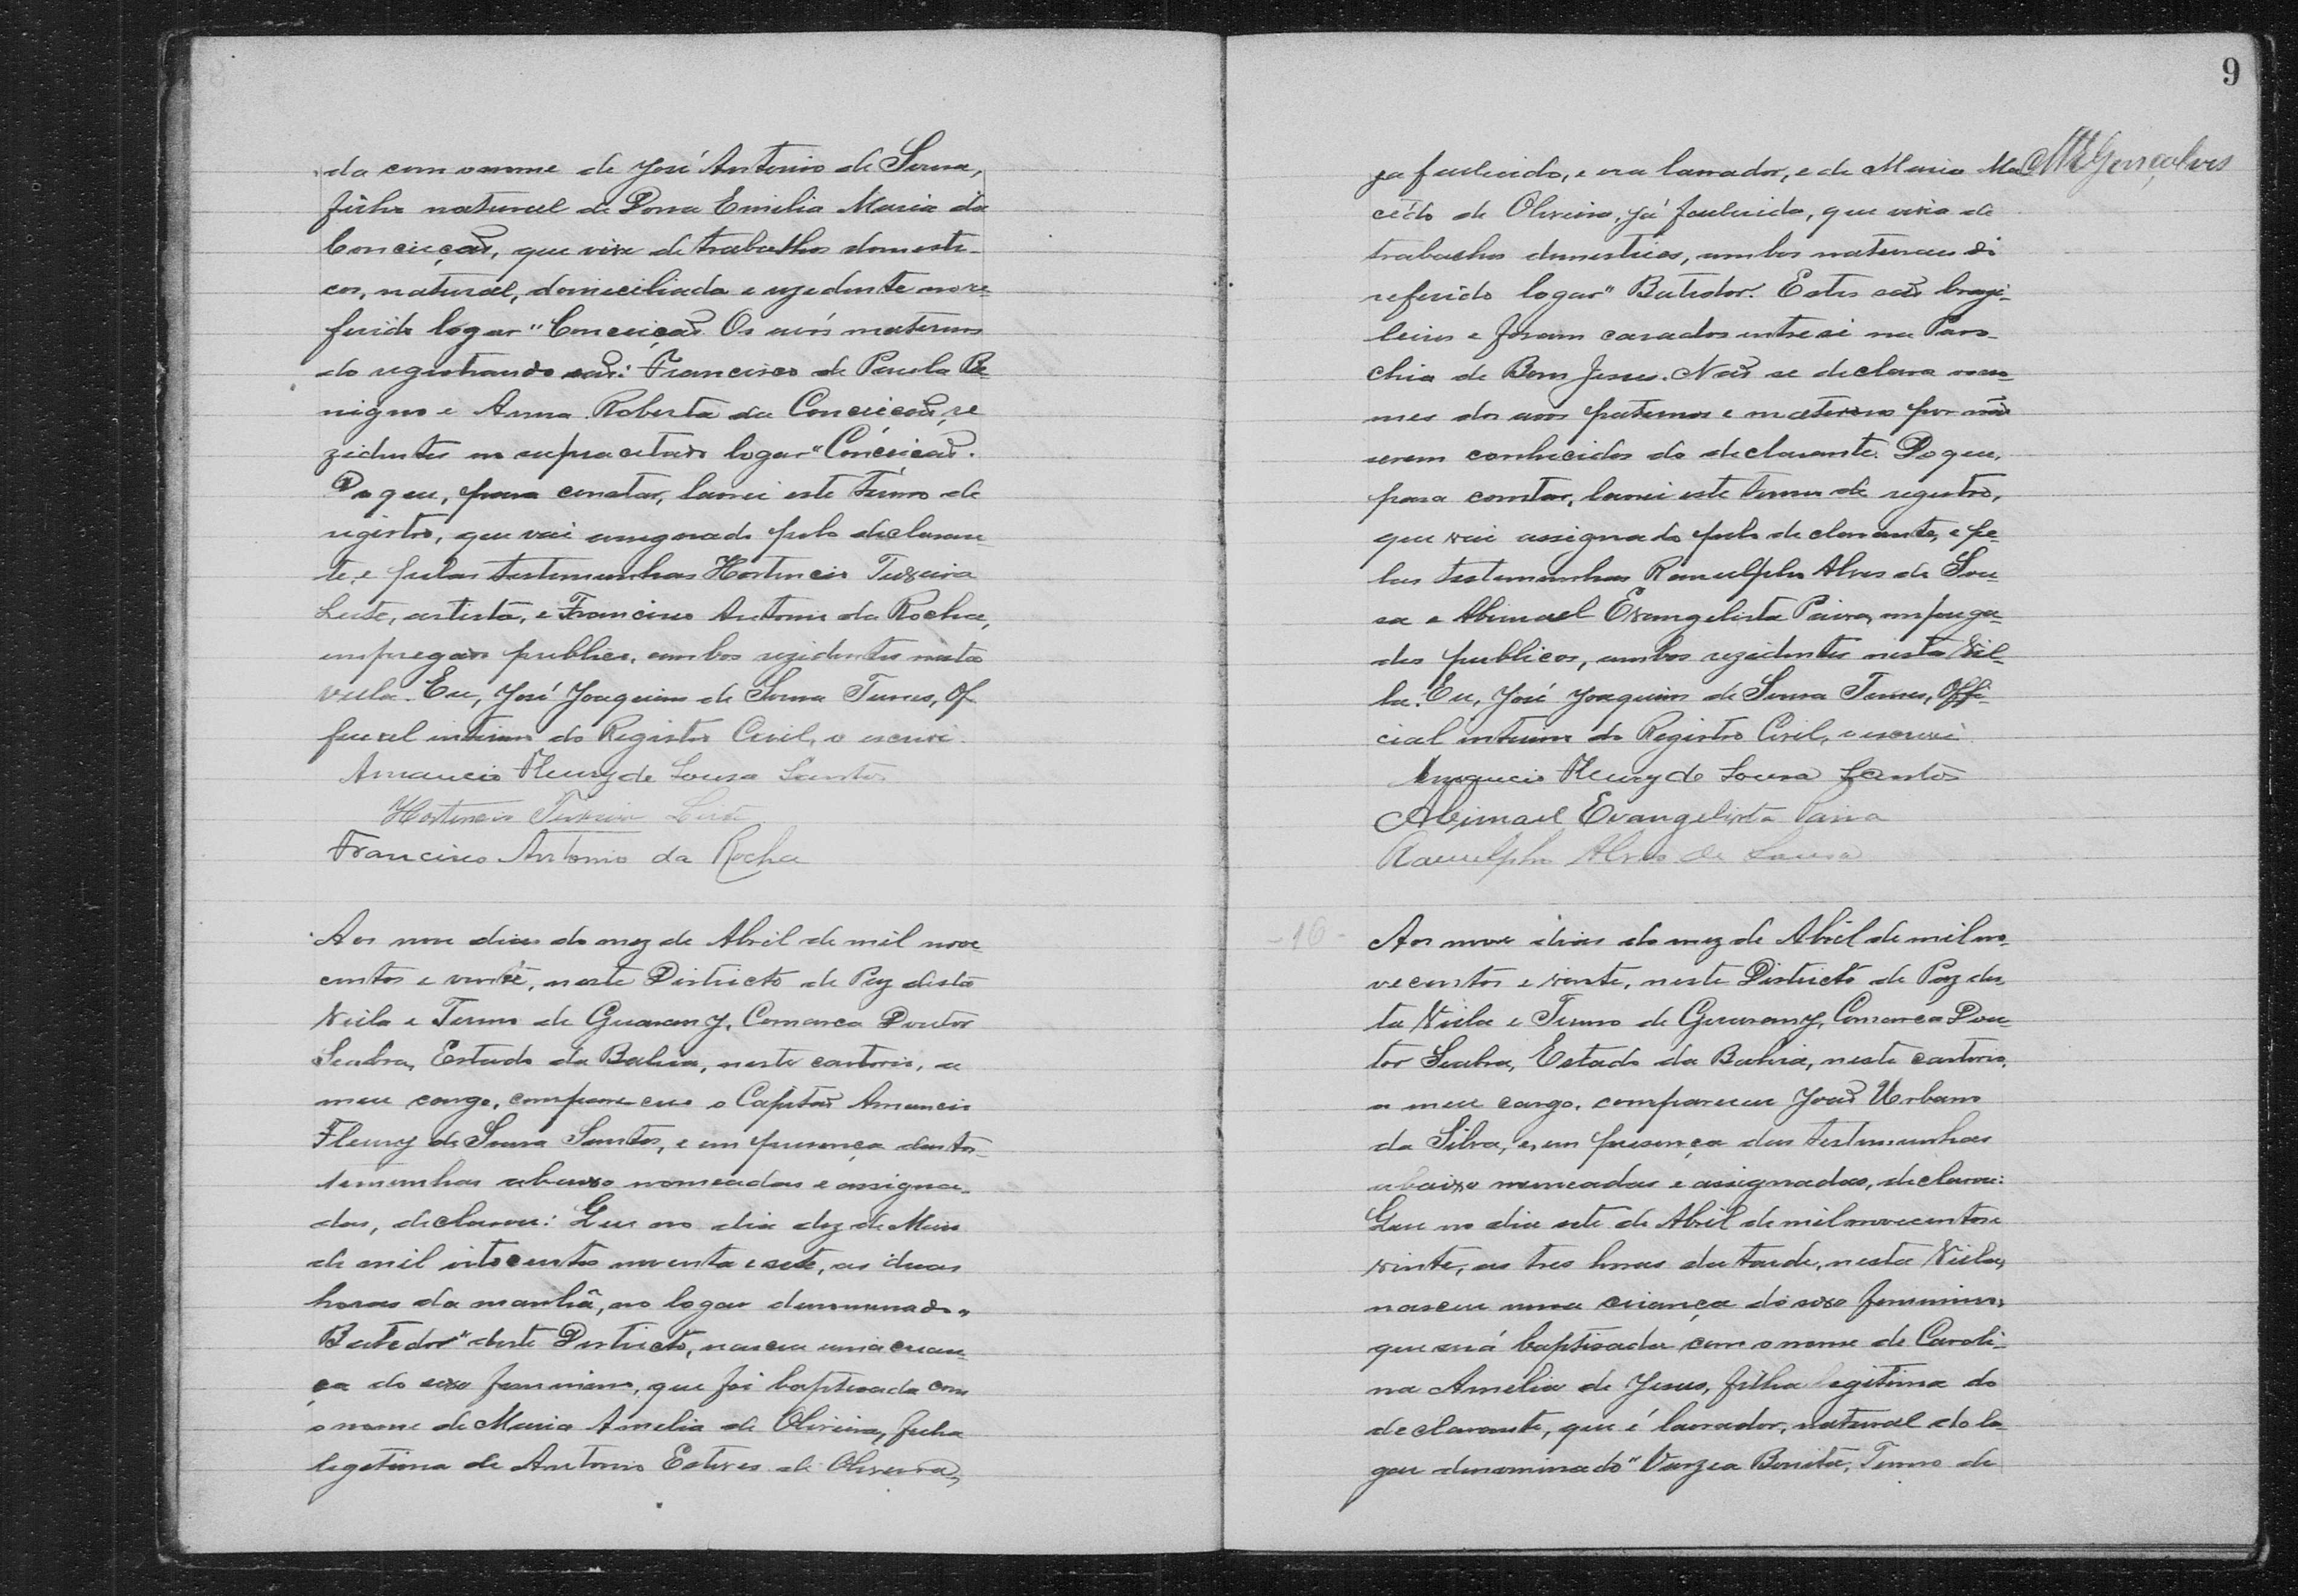 da com o nome de José Antonio de Sousa,
filho natural de Dona Emilia Maria da
Conceição, que vive de trabalhos domesti-
cos, natural, domiciliada e rezidente no re-
ferido logar "Conceição. Os avós maternos
do registrando são: Francisco de Paula Be-
nigno e Anna Roberta da Conceicão, re
zidentes no supracitado logar "Conceicão".
Do que, para constar, lavrei este termo de
registro, que vai assignado pelo declaran-
te, e pelas testemunhas Hortencio Teixeira
Leite, artista, e Francisco Antonio da Rocha,
empregado publico, ambos rezidentes nesta
villa. Eu, José Joaquim de Sousa Tunes, Of-
ficial interino do Registro Civil, o escrevi.
Amancio Fleury de Sousa Santos
Hortencio Teixeira Leite
Francisco Antonio da Rocha
Aos nove dias do mez de Abril de mil nove
centos e vinte, neste Districto de Paz desta
Villa e Termo de Guarany, Comarca Doutor
Seabra, Estado da Bahia, neste cartorio, a
meu cargo, compareceu o Capitão Amancio
Fleury de Sousa Santos, e em presença das tes-
temunhas abaixo nomeadas e assigna-
das, declarou: Que no dia dez de Maio
de mil oitocentos noventa e sete, as duas
horas da manhã, no logar denominado "
Batedor" deste Districto, nasceu uma crean-
ça do sexo feminino, que foi baptisada com
o nome de Maria Amelia de Oliveira, filha
legitima de Antonio Esteves de Oliveira,
9
MGonçalves
ja fallecido, e era lavrador, e de Maria Ma
cêdo de Oliveira, já fallecida, que vivia de
trabalhos domesticos, ambos naturaes do
referido logar "Batedor". Estes são brazi-
leiros e foram casados entre si na Paro-
chia de Bom Jesus. Não se declara os no-
mes dos avós paternos e maternos por não
serem conhecidos do declarante. Do que,
para constar, lavrei este termo de registro,
que vai assignado pelo declarante, e pe-
las testemunhas Ramulpho Alves de Sou-
sa e Abimael Evangelista Paiva, emprega-
dos publicos, ambos rezidentes nesta Vil-
la. Eu, José Joaquim de Sousa Tunes, Offi-
cial interino do Registro Civil, o escrevi
Amancio Fleury de Sousa Santos
Abimael Evangelista Paiva
Ramulpho Alves de Sousa
-10-
Aos nove dias do mez de Abril de mil no-
vecentos e vinte, neste Districto de Paz des-
ta Villa e Termo de Guarany, Comarca Dou-
tor Seabra, Estado da Bahia, neste cartorio,
a meu cargo, compareceu João Urbano
da Silva, e, em presença das testemunhas
abaixo nomeadas e assignadas, declarou:
Que no dia sete de Abril de mil novecentos e
vinte, as tres horas da tarde, nesta Villa,
nasceu uma criança do sexo feminino,
que será baptisada com o nome de Caroli-
na Amelia de Jesus, filha legitima do
declarante, que é lavrador, natural do lo-
gar denominado "Varzea Bonita", Termo de